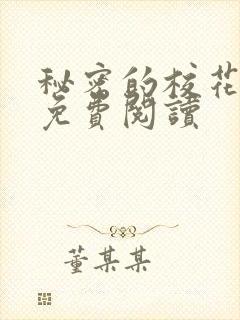 秘密的校花
免費閱讀
董某某